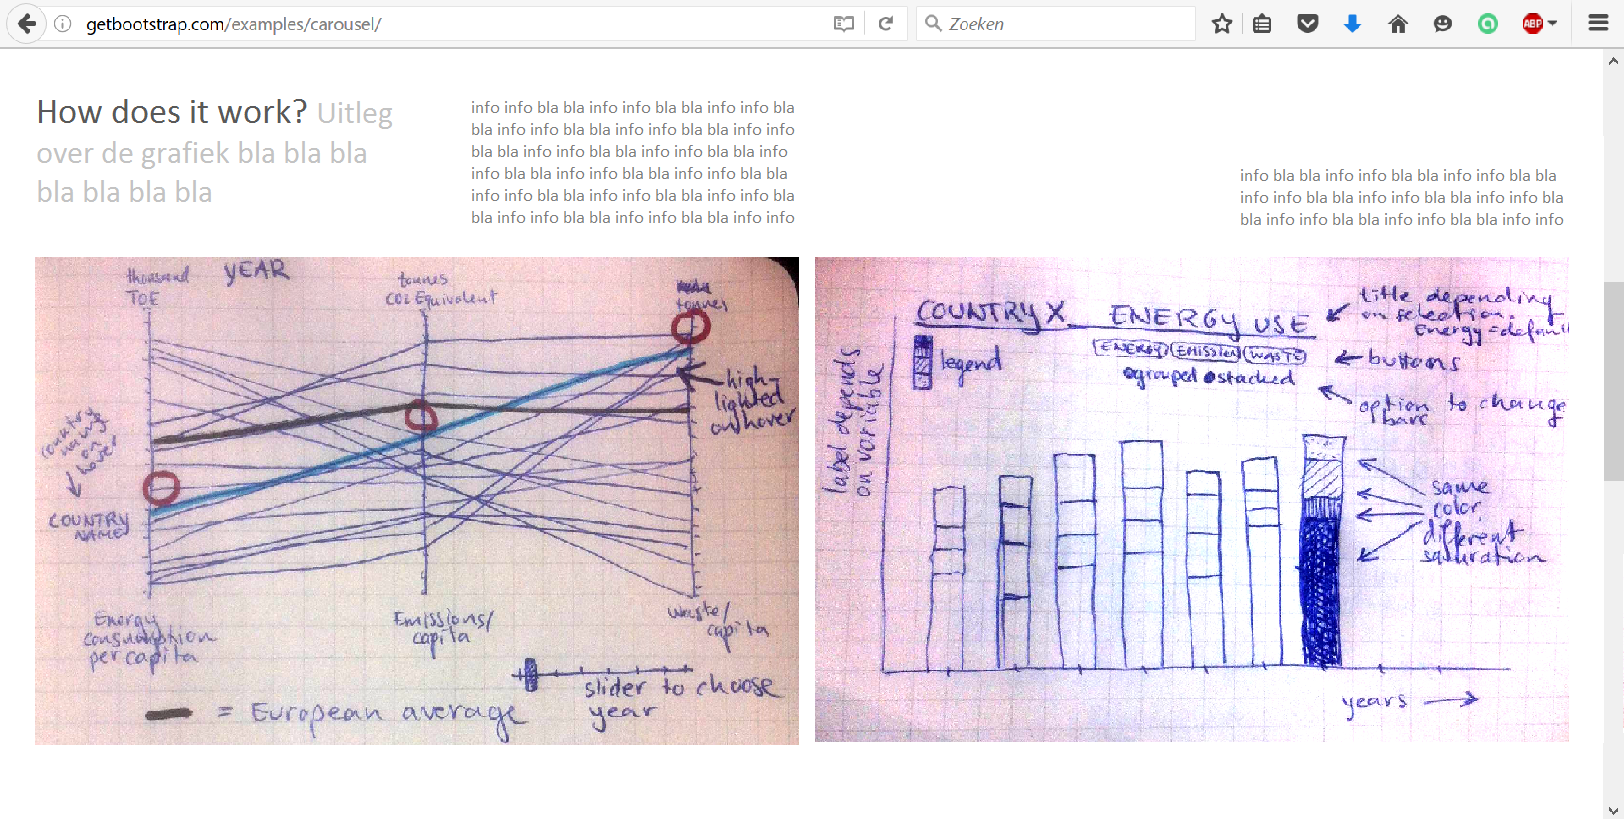 getbootstrap.com/examples/carousel/
Zoeken
ABP
How does it work? Uitleg
over de grafiek bla bla bla
bla bla bla bla
info info bla bla info info bla bla info info bla
bla info info bla bla info info bla bla info info
bla bla info info bla bla info info bla bla info
info bla bla info info bla bla info info bla bla
info info bla bla info info bla bla info info bla
bla info info bla bla info info bla bla info info
info bla bla info info bla bla info info bla bla
info info bla bla info info bla bla info info bla
bla info info bla bla info info bla bla info info
thousand
TOE
YEAR
tonnes
CO2 Equivalent
tonnes
high-
lighted
on hover
country
name
on
hover
COUNTRY
NAME
Energy
consumption
per capita
Emissions/
capita
waste/
capita
slider to choose
year
= European average
COUNTRY X ENERGY USE
title depending
on selection.
Energy = default
legend
ENERGY EMISSION WASTE
buttons
grouped stacked
option to change
bars
label depends
on variable
same
color,
different
saturation
years